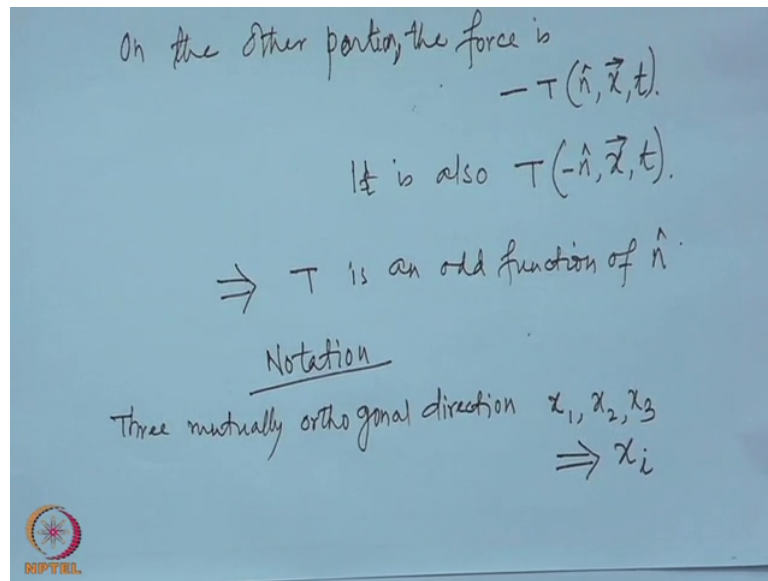 On the other portion, the force is
− T (n̂, x⃗, t).
It is also T (−n̂, x⃗, t).
⇒ T is an odd function of n̂.
Notation
Three mutually orthogonal direction x₁, x₂, x₃
⇒ xᵢ
NPTEL